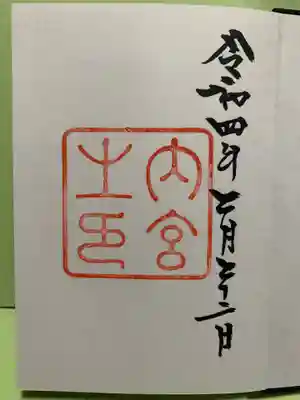 令和四年二月二十二日
内宮之印